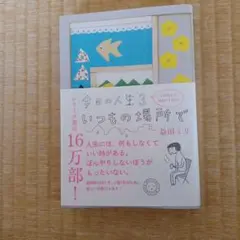 今日の人生3
いつもの場所で
益田ミリ
シリーズ累計
16万部!
人生には、何もしなくて
いい時がある。
ぼんやりしないほうが
もったいない。